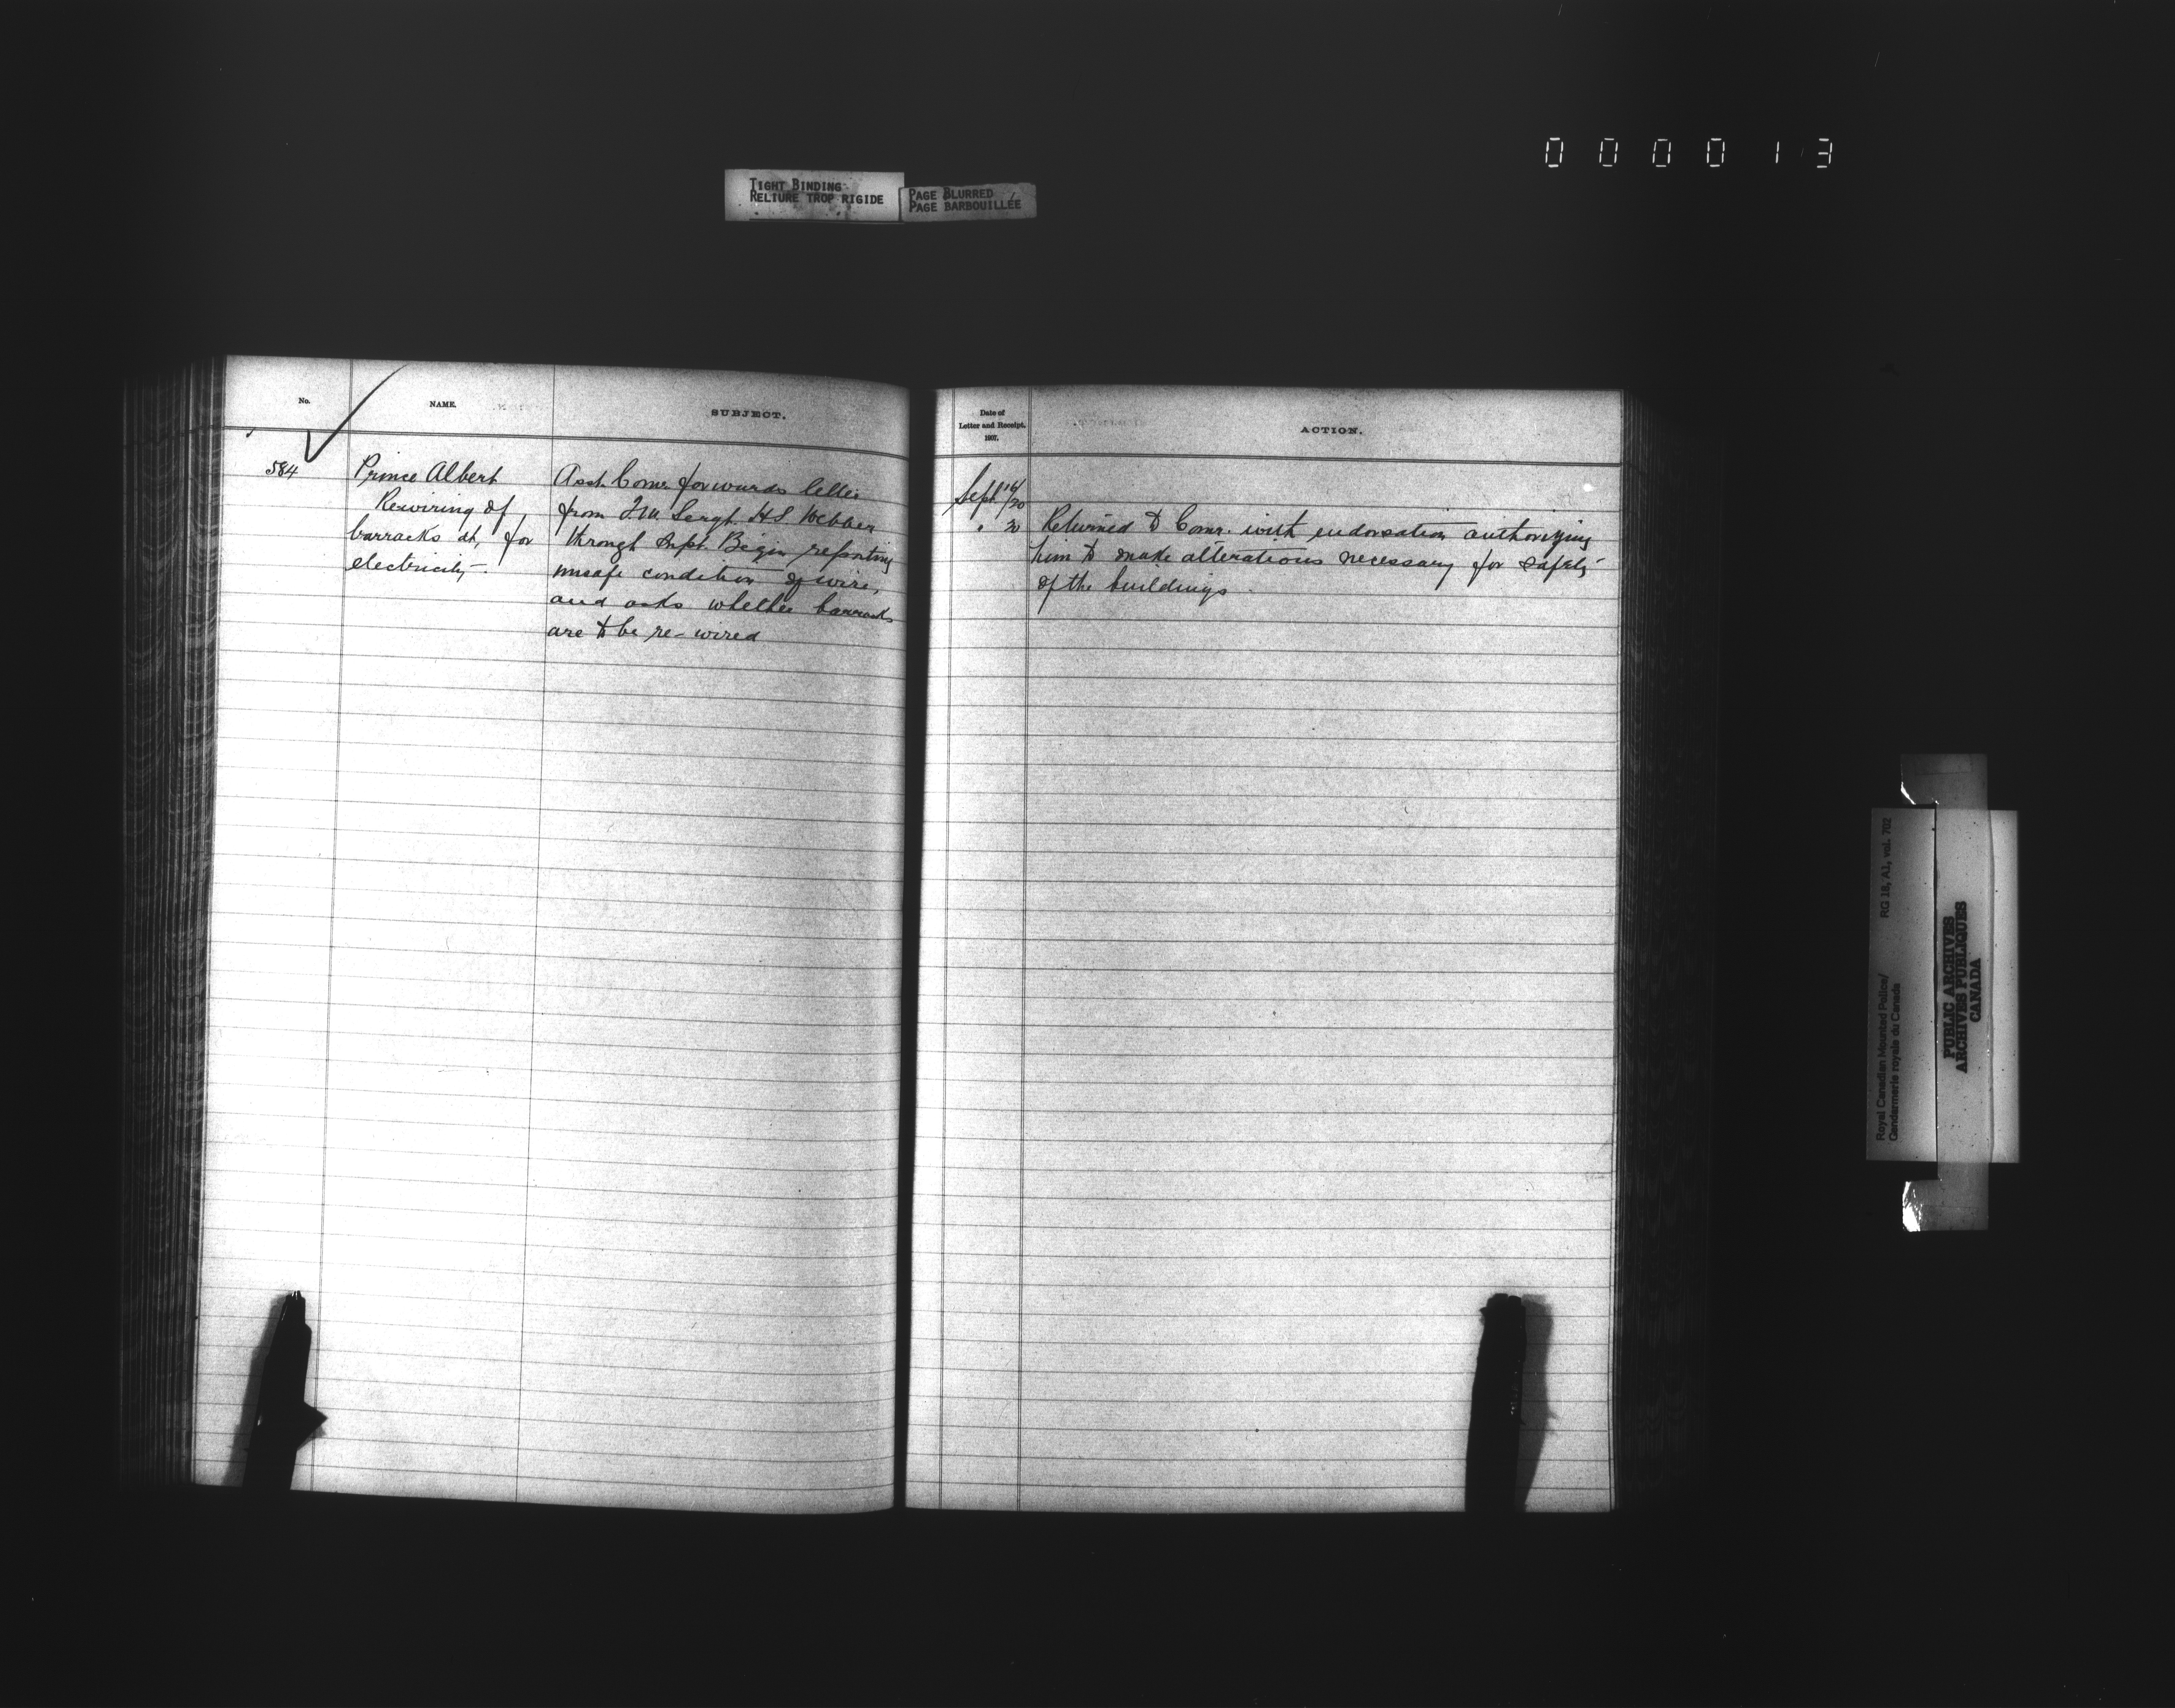 000013
TIGHT BINDING
RELIURE TROP RIGIDE
PAGE BLURRED
PAGE BARBOUILLÉE
No.
NAME.
SUBJECT.
584
Prince Albert
Rewiring of
barracks at, for
electricity.
Asst. Comr. forwards letter
from Q.M. Sergt. H.S. Webber
through Supt. Begin reporting
unsafe condition of wire,
and asks whether barracks
are to be re-wired
Date of
Letter and Receipt.
1907.
ACTION.
Sept 16/20
" 20
Returned to Comr. with endorsation authorizing
him to make alterations necessary for safety
of the buildings.
Royal Canadian Mounted Police/
Gendarmerie royale du Canada
RG 18, A1, vol. 702
PUBLIC ARCHIVES
ARCHIVES PUBLIQUES
CANADA